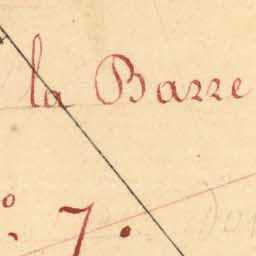 la Barre
º 7.